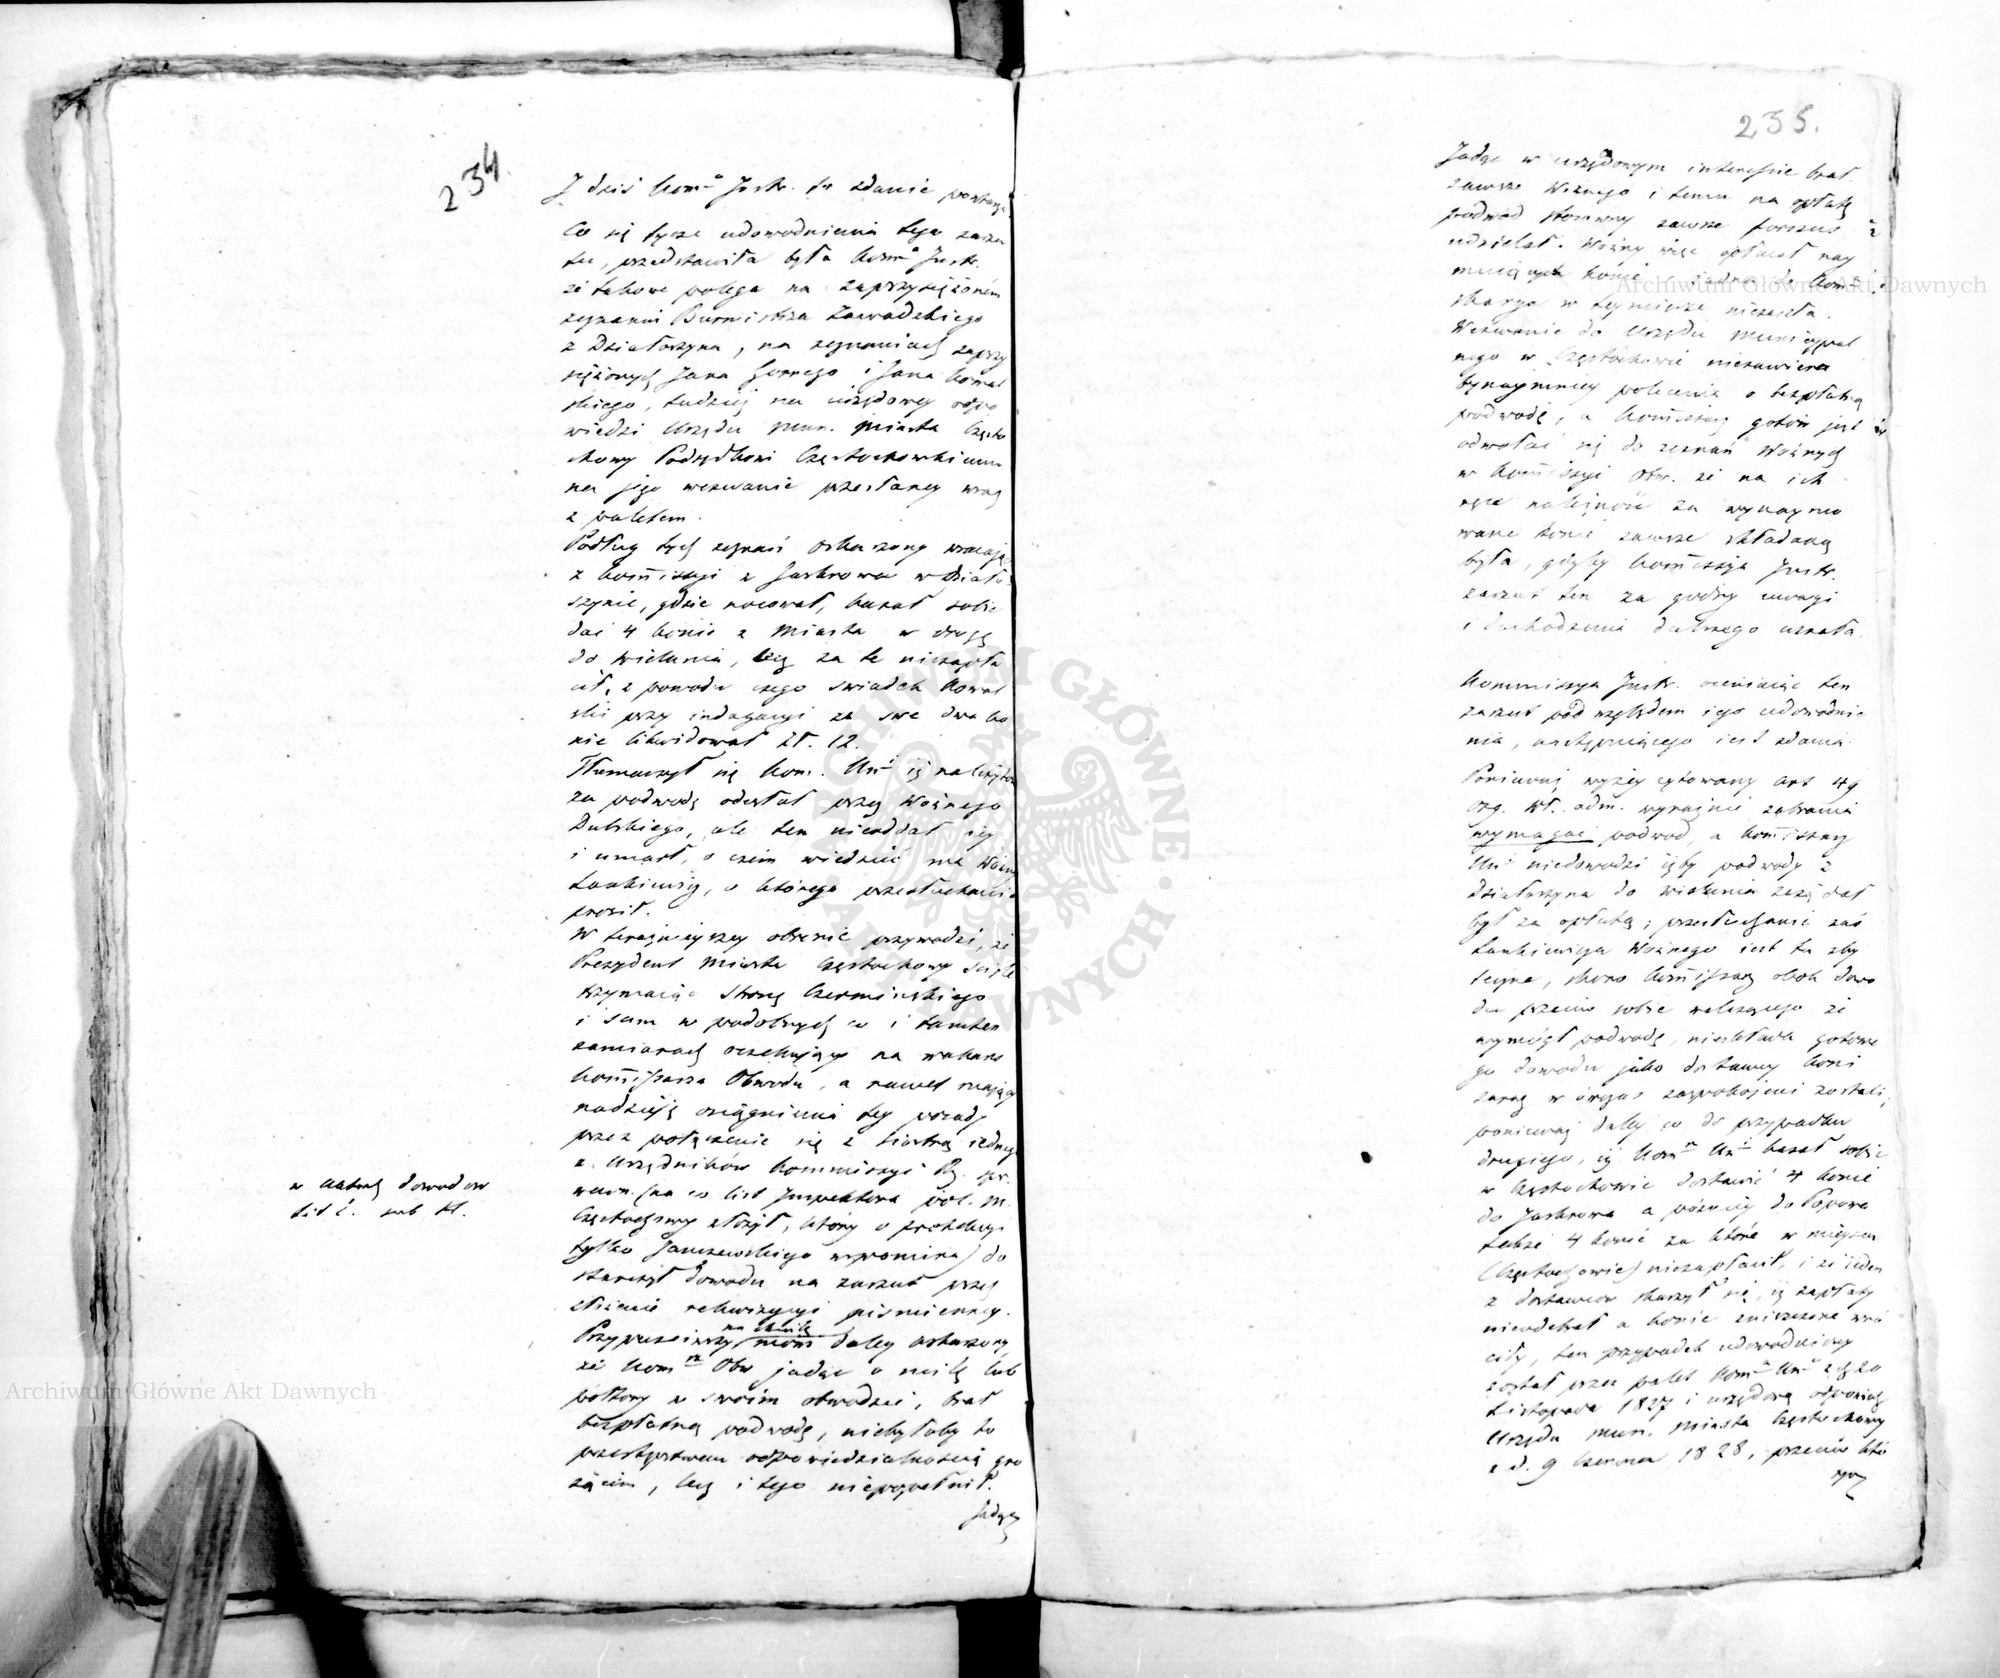 234.
I dziś Komᵃ Instr. to zdanie powtarza.
Co się tycze udowodnienia tego zarzu
tu, przedstawiła była Kommᵃ Instr.
że takowe polega na zaprzysiężoném
zeznaniu Burmistrza Zawadzkiego
z Działoszyna, na zeznaniach zaprzy
siężonych Jana Gornego i Jana Kowal
skiego, tudzież na urzędowey odpo
wiedzi Urzędu Mun. Miasta Często
chowy Podsędkowi Częstochowskiemu
na jego wezwanie przesłaney wraz
z paletem.
Podług tych zeznań Oskarzony wracając
z Kommissyi z Jaskrowa w Działo
szynie, gdzie nocował, kazał sobie
dać 4 konie z Miasta w drogę
do Wielunia, lecz za te niezapła
cił, z powodu czego swiadek Kowal
ski przy indagacyi za swe dwa ko
nie likwidował Zł. 12.
Tłumaczył się Kom. Unᵎ iż należytość
za podwodę odesłał przez Woźnego
Dulskiego, ale ten nieoddał iey
i umarł, o czem wiedzieć ma Woźny
Łaskiewicz, o którego przesłuchanie
prosił.
W teraźnieyszey obronie przywodzi, że
Prezydent Miasta Częstochowy ściśle
trzymaiąc stronę Czermińskiego
i sam w podobnych co i tamten
zamiarach oczekujący na wakans
Kommissarza Obwodu, a nawet mający
nadzieję osiągnienia tey posady
przez połączenie się z siostrą iednego
z Urzędników Kommissyi Rz. Spr.
wewn. (na co list Inspektora pol. M.
Częstochowy złożył, który o protekcyi
tylko Janiszewskiego wspomina) do
starczył dowodu na zarzut przez
złożenie rekwizycyi pismienney.
Przypuściwszy na chwilę mówi daley oskarzony,
że Komʳᶻ Obw jadąc o milę lub
półtory w swoim obwodzie, brał
bezpłatną podwodę, niebyłoby to
przestępstwem odpowiedzialnością gro
żącem, lecz i tego niepopełnił.
Jadąc
w aktach dowodow
Lit Ł. sub H.
235.
Jadąc w urzędowym interessie brał
zawsze Woznego i temu na opłatę
podwod stosowny zawsze forszus
udzielał. Woźny więc opłacał nay
muiących konie i żadna do Kom.
skarga w tey mierze niezaszła.
Wezwanie do Urzędu Municypal
nego w Częstochowie niezawiera
bynaymniey polecenia o bezpłatną
podwodę, a Kommissarz gotów jest
odwołać się do zeznań Woźnych
w Kommissyi Obw. że na ich
ręce należność za wynaymo
wane konie zawsze składaną
była, gdyby Kommissya Instr.
zarzut ten za godny uwagi
i dochodzenia dalszego uznała.
Kommissya Instr. oceniaiąc ten
zarzut pod względem iego udowodnie
nia, następuiącego iest zdania.
Ponieważ wyżey cytowany art 49
org. Wł. adm. wyraźnie zabrania
wymagać podwod, a Kommissarz
Unᵎ niedowodzi iżby podwody z
Działoszyna do Wielunia zażądał
był za opłatą; przesłuchanie zaś
Łaskiewicza Woźnego iest tu zby
teczne, skoro Kommissarz obok dowo
du przeciw sobie walczącego że
wymógł podwodę, nieskłada gotowe
go dowodu jako dostawcy koni
zaraz w ówczas zaspokojeni zostali;
ponieważ daley co do przypadku
drugiego, iż Komʳᶻ Unᵎ kazał sobie
w Częstochowie dostawić 4 konie
do Jaskrowa a pózniey do Popowa
także 4 konie za które w mieyscu
(Częstochowie) niezapłacił, i że ieden
z dostawcow skarzył się, iż zapłaty
nieodebrał a konie zniszczone wró
ciły, ten przypadek udowodniony
został przez palet Komʳᵃ Unᵎ z d. 20
Listopada 1827 i urzędową odpowiedź
Urzędu Mun. Miasta Częstochowy
z d. 9 Czerwca 1828, przeciw któ
rym
Archiwum Główne Akt Dawnych
Archiwum Główne Akt Dawnych
ARCHIWUM GŁÓWNE AKT DAWNYCH